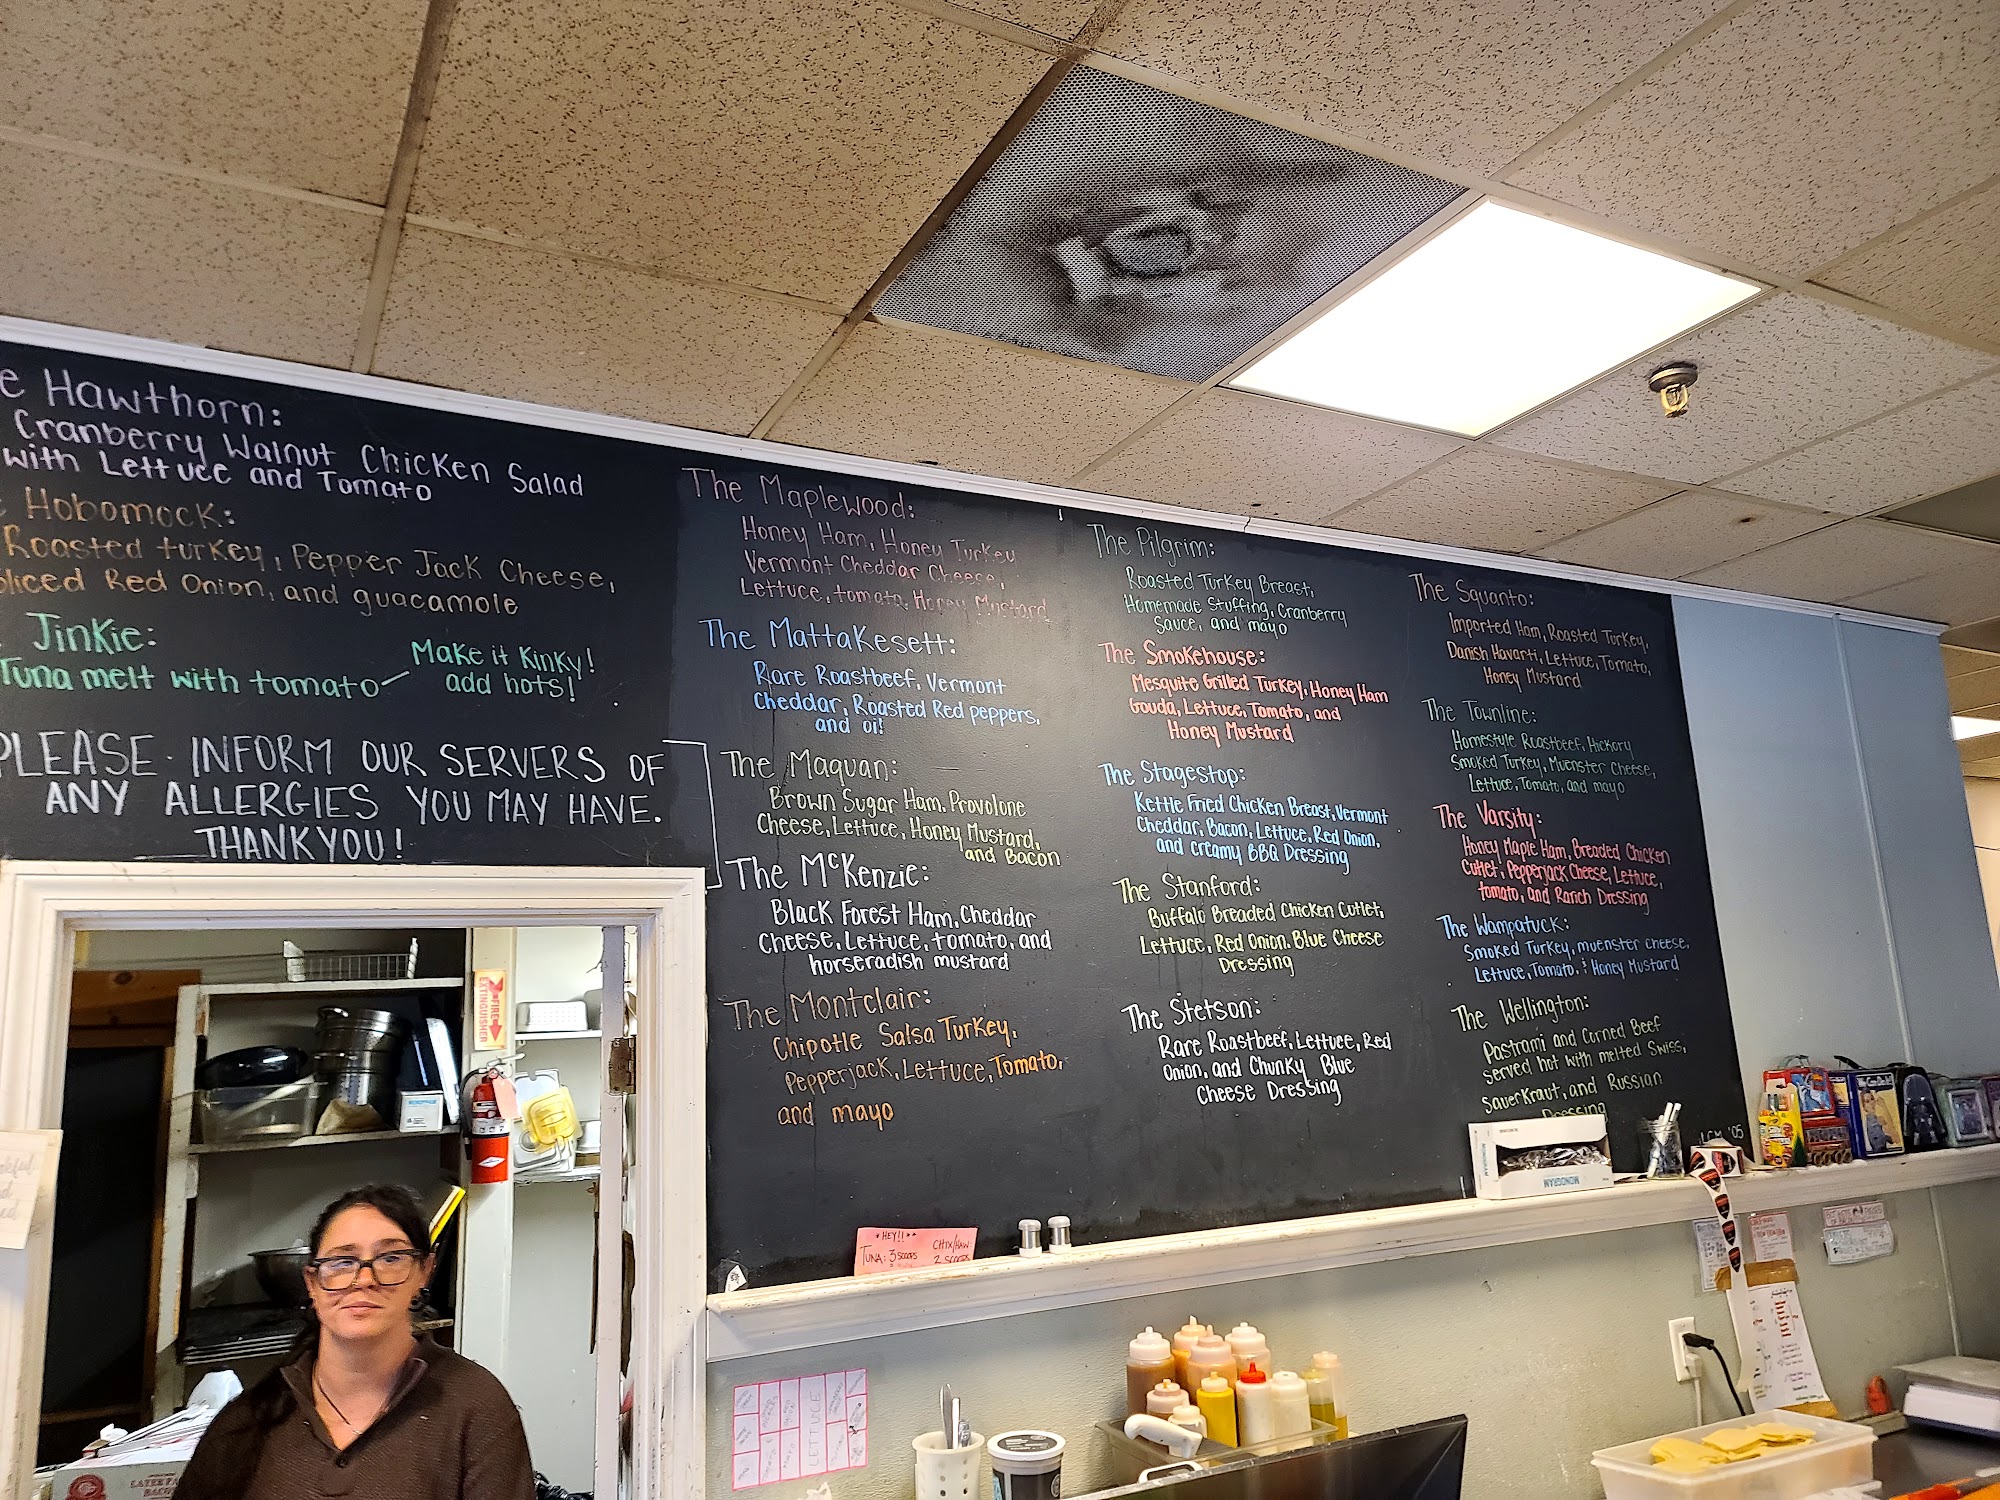 e Hawthorn:
Cranberry Walnut Chicken Salad
with Lettuce and Tomato
Hobomock:
Roasted turkey, Pepper Jack Cheese,
Sliced Red Onion, and guacamole
Jinkie:
Tuna melt with tomato
Make it Kinky!
add hots!
PLEASE INFORM OUR SERVERS OF
ANY ALLERGIES YOU MAY HAVE.
THANK YOU!
The Maplewood:
Honey Ham, Honey Turkey
Vermont Cheddar Cheese,
Lettuce, tomato, Honey Mustard
The Mattakesett:
Rare Roastbeef, Vermont
Cheddar, Roasted Red peppers,
and oil
The Maquan:
Brown Sugar Ham, Provolone
Cheese, Lettuce, Honey Mustard,
and Bacon
The McKenzie:
Black Forest Ham, Cheddar
Cheese, Lettuce, tomato, and
horseradish mustard
The Montclair:
Chipotle Salsa Turkey,
Pepperjack, Lettuce, Tomato,
and mayo
The Pilgrim:
Roasted Turkey Breast,
Homemade Stuffing, Cranberry
Sauce, and mayo
The Smokehouse:
Mesquite Grilled Turkey, Honey Ham
Gouda, Lettuce, Tomato, and
Honey Mustard
The Stagestop:
Kettle Fried Chicken Breast, Vermont
Cheddar, Bacon, Lettuce, Red Onion,
and creamy BBQ Dressing
The Stanford:
Buffalo Breaded Chicken Cutlet,
Lettuce, Red Onion, Blue Cheese
Dressing
The Stetson:
Rare Roastbeef, Lettuce, Red
Onion, and Chunky Blue
Cheese Dressing
The Squanto:
Imported Ham, Roasted Turkey,
Danish Havarti, Lettuce, Tomato,
Honey Mustard
The Townline:
Homestyle Roastbeef, Hickory
Smoked Turkey, Muenster Cheese,
Lettuce, Tomato, and mayo
The Varsity:
Honey Maple Ham, Breaded Chicken
Cutlet, Pepperjack Cheese, Lettuce,
tomato, and Ranch Dressing
The Wampatuck:
Smoked Turkey, muenster cheese,
Lettuce, Tomato, & Honey Mustard
The Wellington:
Pastrami and Corned Beef
served hot with melted Swiss,
Sauerkraut, and Russian
Dressing
LCM '05
FIRE
EXTINGUISHER
*HEY!!**
TUNA: 3 SCOOPS
CHIX/HAW
2 SCOOPS
MONOGRAM
LETTUCE